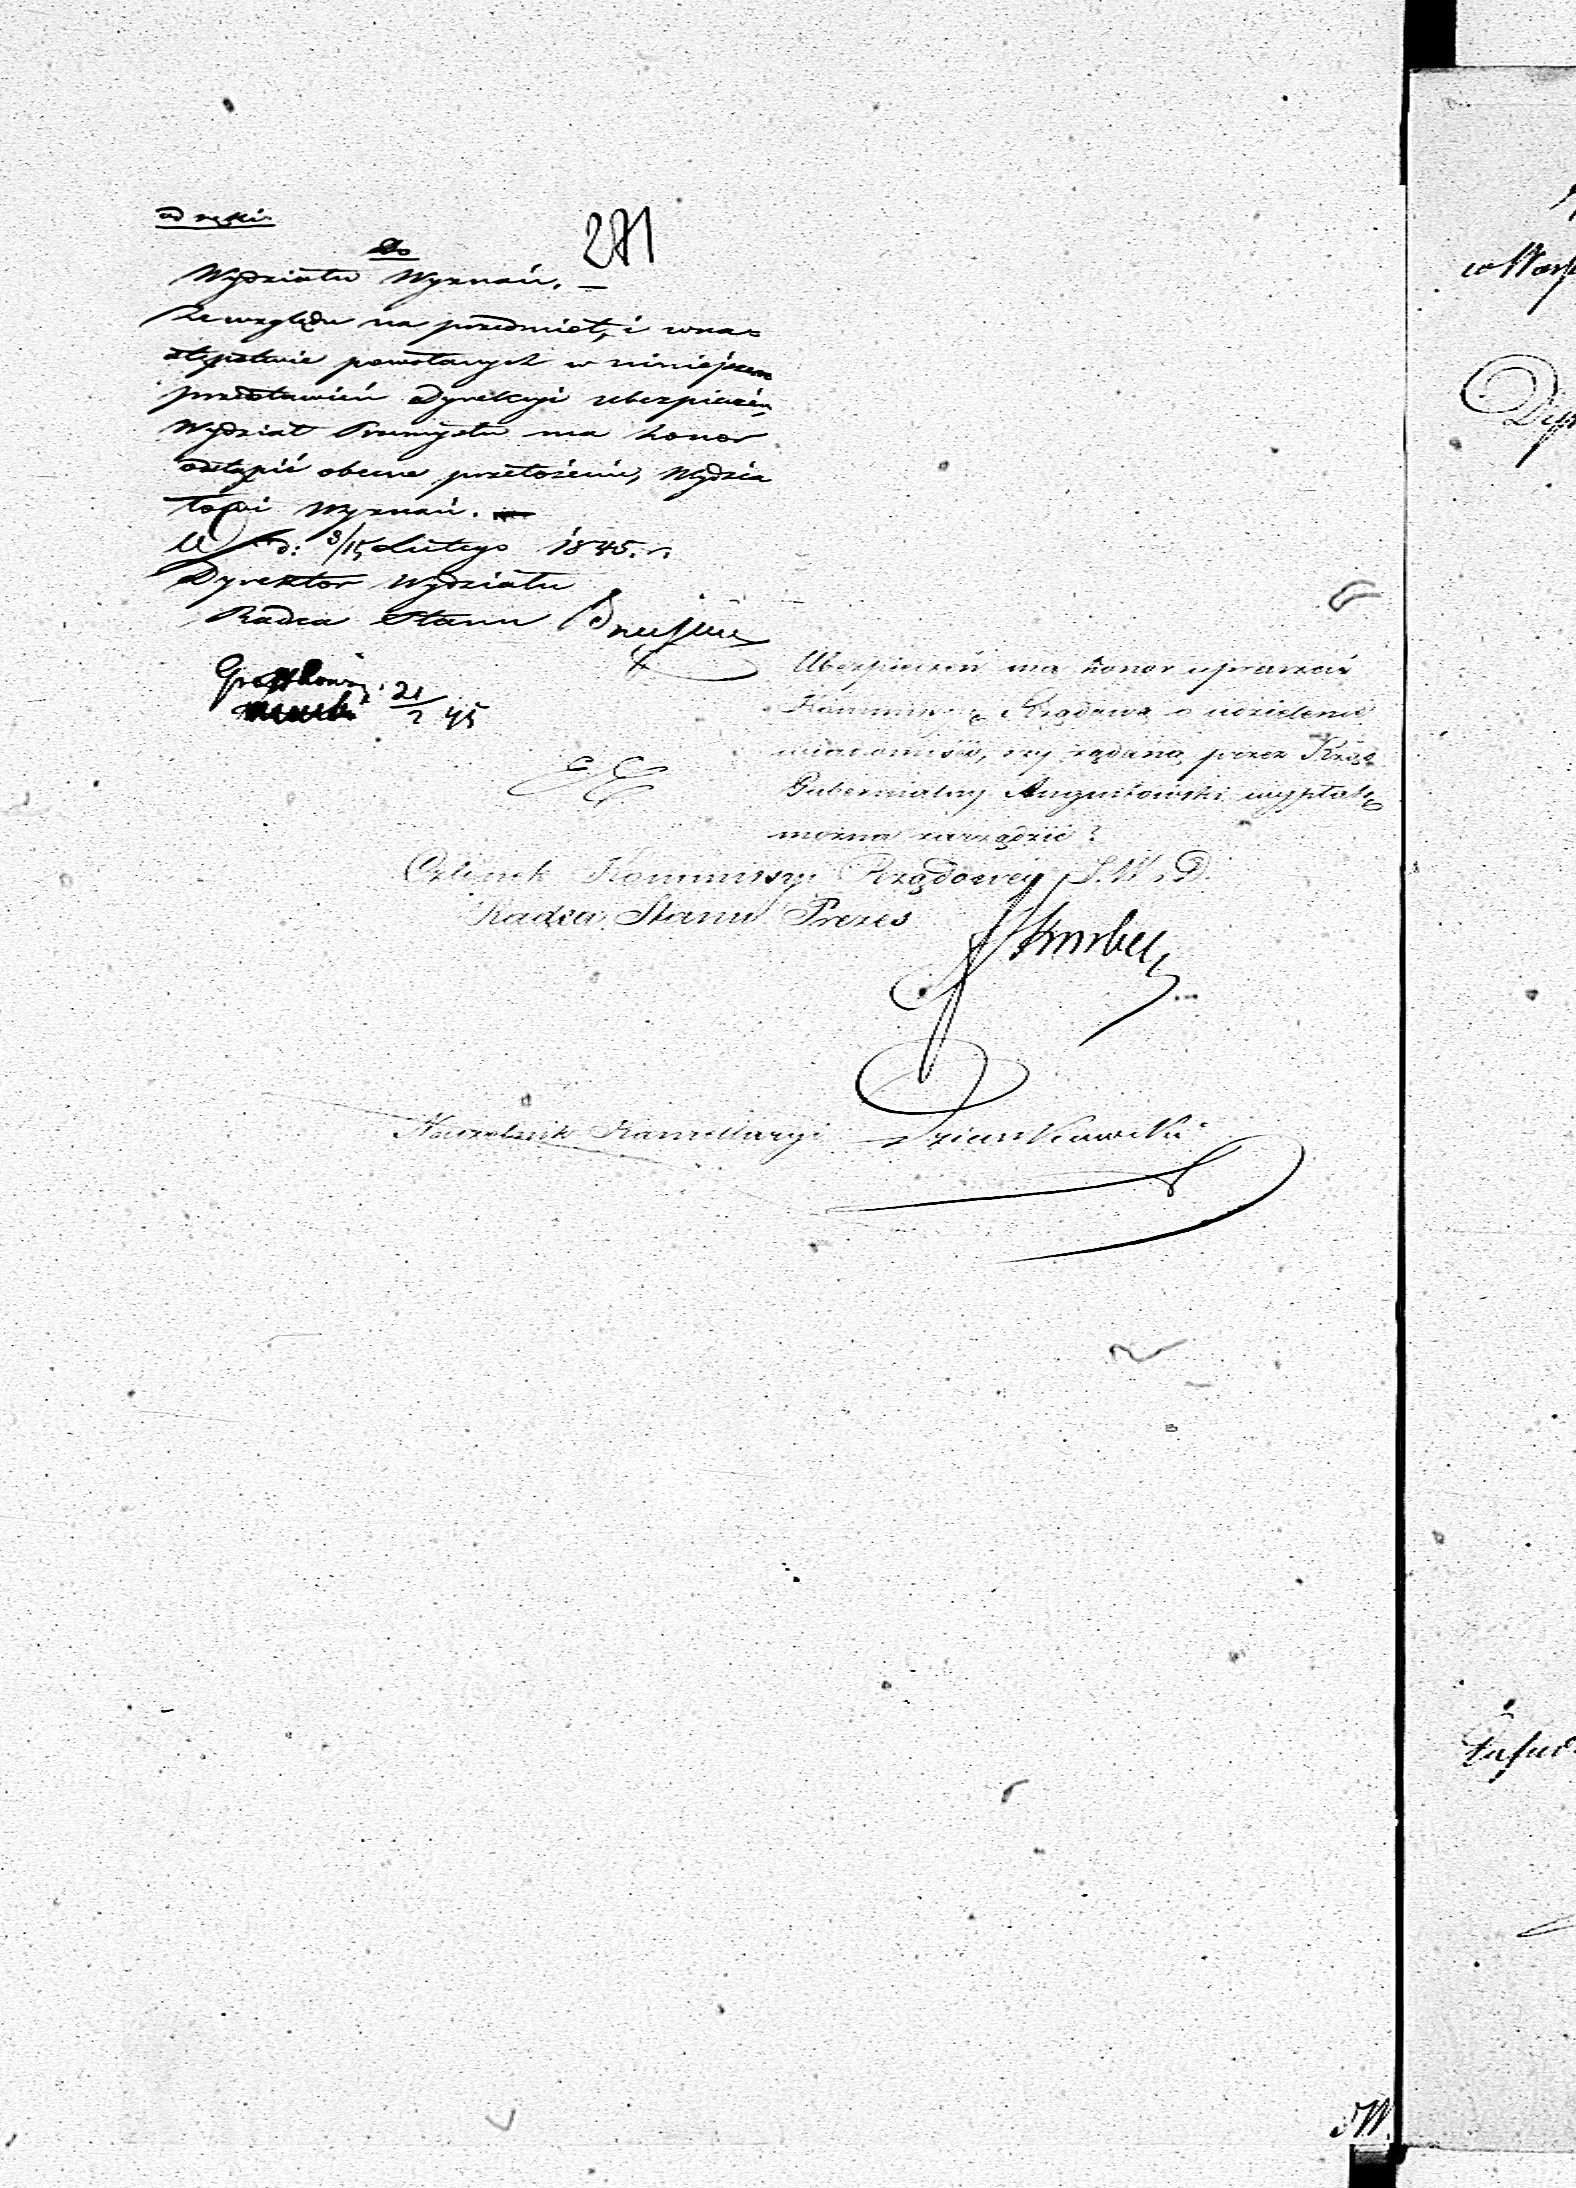 od ręki
271
Do
Wydziału Wyznań. —
Ze względu na przedmiot, i wna=
stępstwie powołanych w niniejszem
przedstawień Dyrekcyi Ubezpieczeń,
Wydział Przemysłu ma honor
odstąpić obecne przełożenie, Wydzia
łowi Wyznań. —
W d: 3/15 Lutego 1845. r.
Dyrektor Wydziału
Radca Stanu
21/2 45
Ubezpieczeń ma honor upraszać
Kommissyą Rządową o udzielenie
wiadomości, czy żądaną przez Rząd
Gubernialny Augustowski wypłatę
można zarządzić?
Członek Kommissyi Rządowej S. W. i D.
Radca Stanu Prezes
Naczelnik Kancellaryi Dziankowski
w Wars
Dy
S.W.